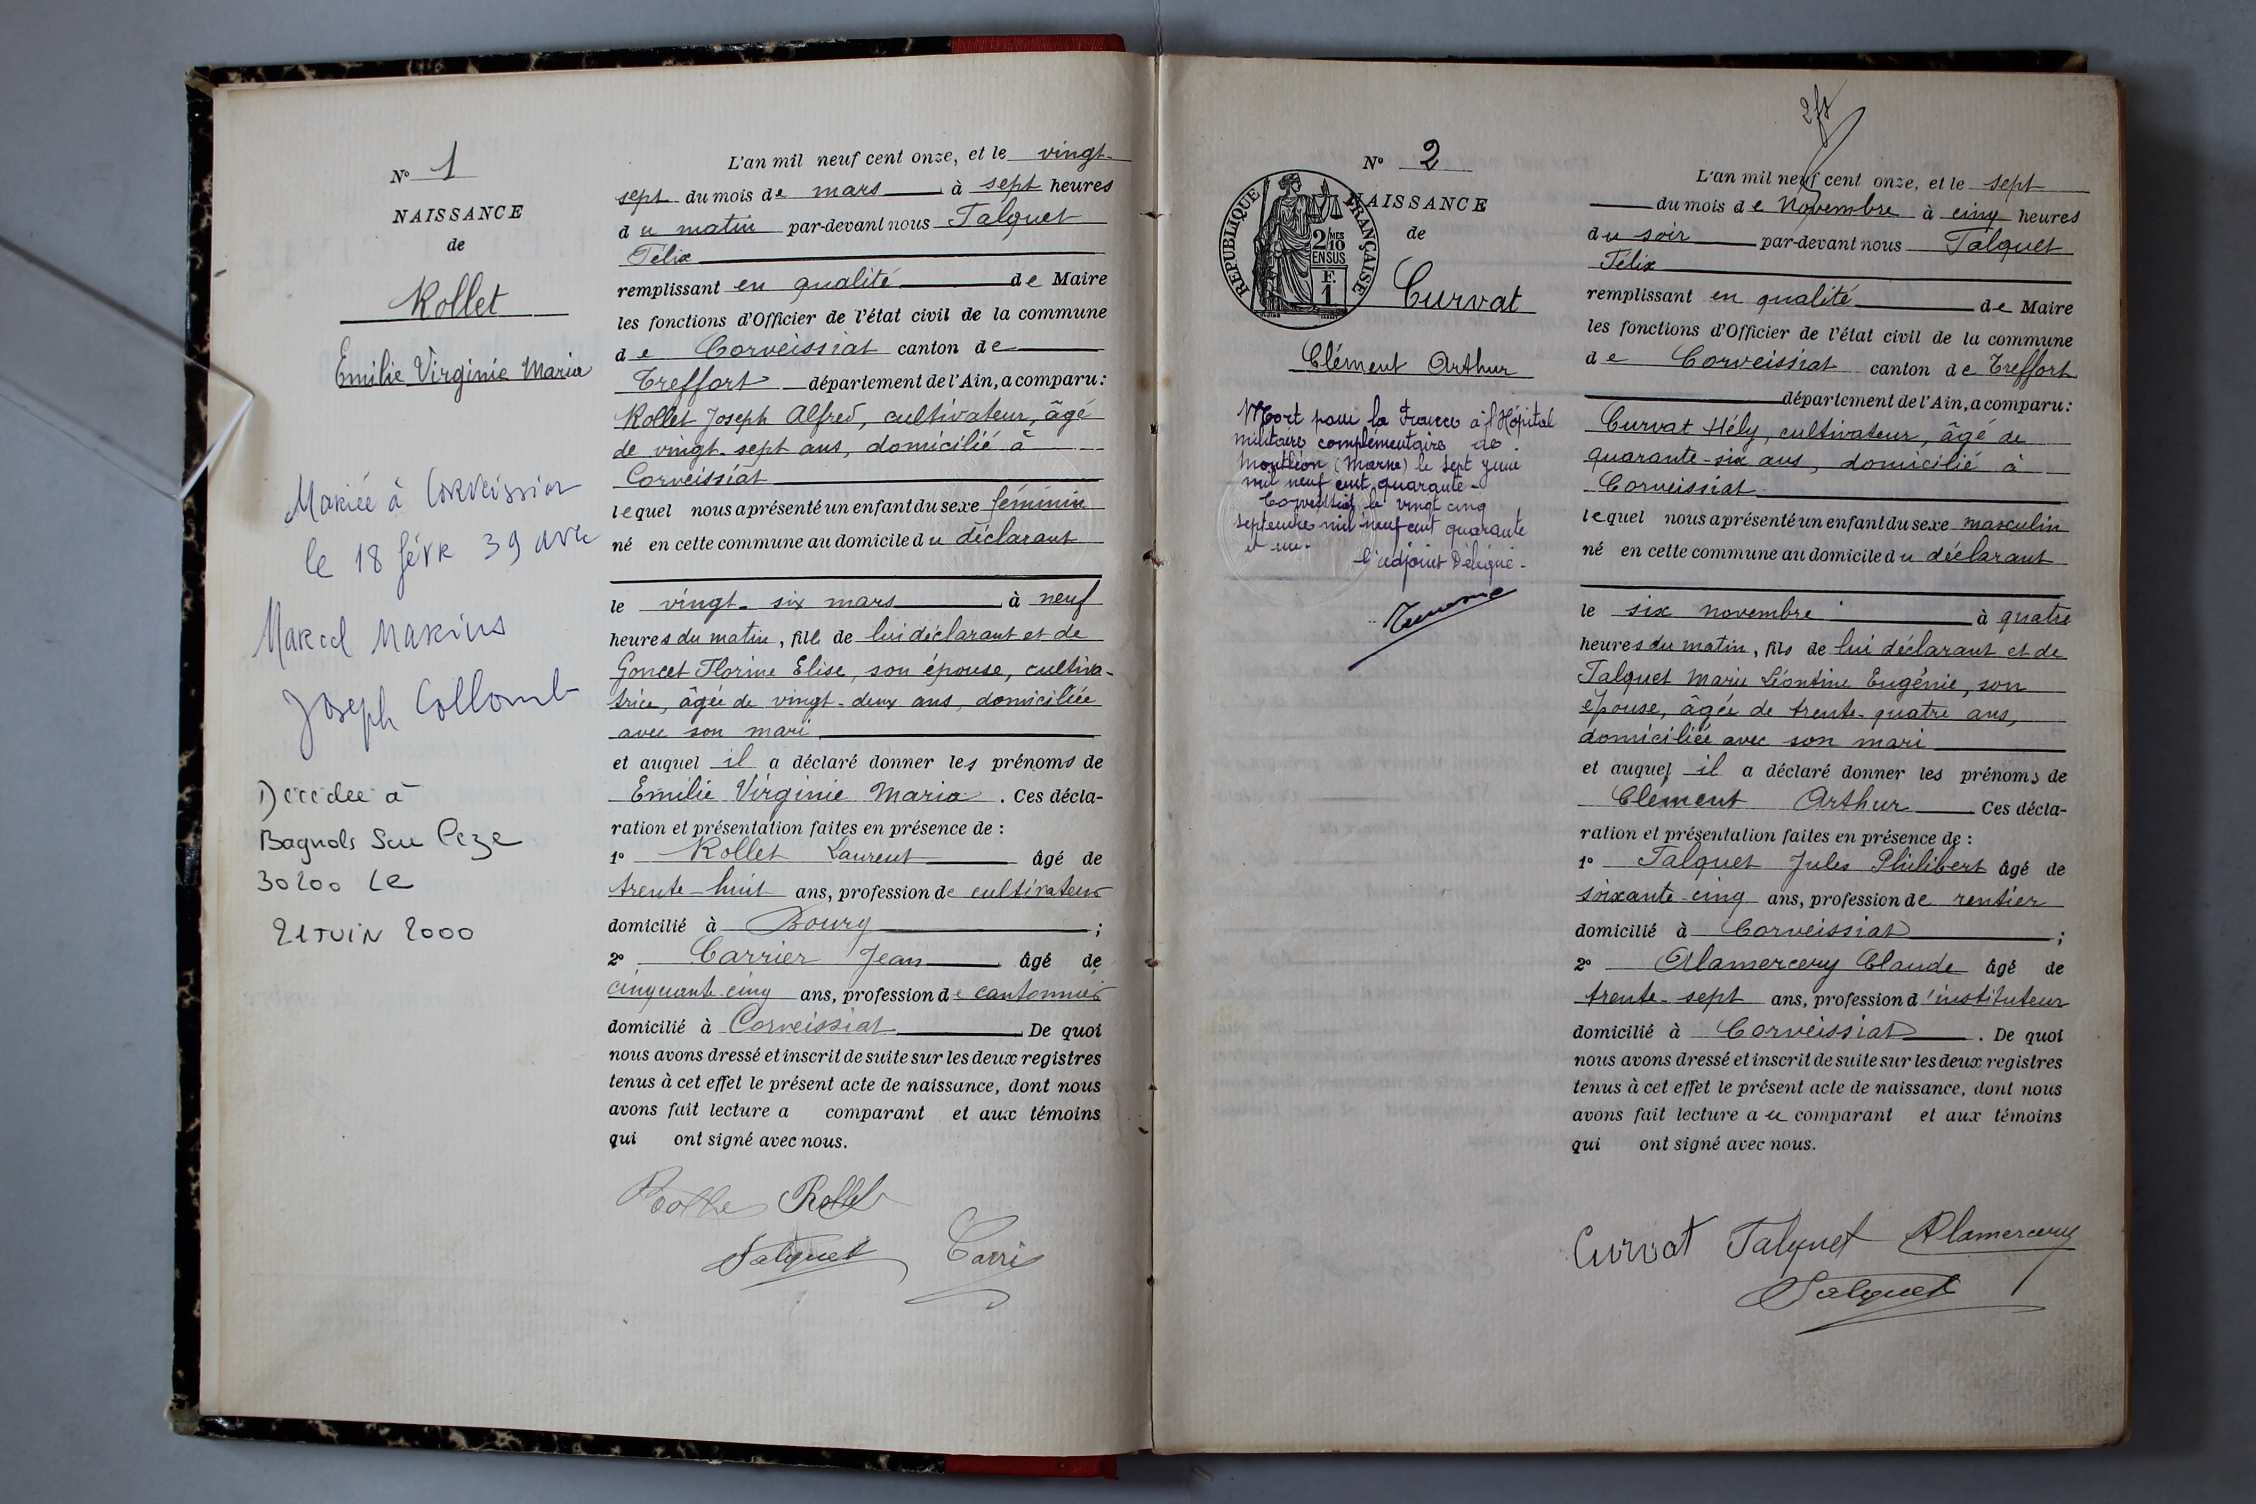 N° 1
NAISSANCE
de
Rollet
Emilie Virginie Maria
Mariée à Corveissiat
le 18 févr 39 avec
Marcel Marius
Joseph Collomb
Décédée à
Bagnols Sur Ceze
30200 Le
21 JUIN 2000
L'an mil neuf cent onze, et le vingt-
sept du mois de mars à sept heures
du matin par-devant nous Talquet
Félix
remplissant en qualité de Maire
les fonctions d'Officier de l'état civil de la commune
de Corveissiat canton de
Treffort département de l'Ain, a comparu:
Rollet Joseph Alfred, cultivateur, âgé
de vingt-sept ans, domicilié à
Corveissiat
lequel nous a présenté un enfant du sexe féminin
né en cette commune au domicile du déclarant
le vingt-six mars à neuf
heures du matin, fille de lui déclarant et de
Goncet Florine Elise, son épouse, cultiva-
trice, âgée de vingt-deux ans, domiciliée
avec son mari
et auquel il a déclaré donner les prénoms de
Emilie Virginie Maria. Ces décla-
ration et présentation faites en présence de :
1° Rollet Laurent âgé de
trente-huit ans, profession de cultivateur
domicilié à Bourg ;
2° Carrier Jean âgé de
cinquante cinq ans, profession de cantonnier
domicilié à Corveissiat De quoi
nous avons dressé et inscrit de suite sur les deux registres
tenus à cet effet le présent acte de naissance, dont nous
avons fait lecture a comparant et aux témoins
qui ont signé avec nous.
Rollet
Talquet
N° 2
NAISSANCE
de
RÉPUBLIQUE FRANÇAISE
2/10 MES
EN SUS
F.
1
Curvat
Clément Arthur
Mort pour la France à l'Hôpital
militaire complémentaire de
(Marne) le sept juin
mil neuf cent quarante-
Corveissiat le vingt cinq
septembre mil neuf cent quarante
et un.
l'adjoint Délégué-
L'an mil neuf cent onze, et le sept
du mois de Novembre à cinq heures
du soir par-devant nous Talquet
Félix
remplissant en qualité de Maire
les fonctions d'Officier de l'état civil de la commune
de Corveissiat canton de Treffort
département de l'Ain, a comparu:
Curvat Hély, cultivateur, âgé de
quarante-six ans, domicilié à
Corveissiat
lequel nous a présenté un enfant du sexe masculin
né en cette commune au domicile du déclarant
le six novembre à quatre
heures du matin, fils de lui déclarant et de
Talquet Marie Léontine Eugénie, son
épouse, âgée de trente-quatre ans,
domiciliée avec son mari
et auquel il a déclaré donner les prénoms de
Clément Arthur Ces décla-
ration et présentation faites en présence de :
1° Talquet Jules Philibert âgé de
soixante cinq ans, profession de rentier
domicilié à Corveissiat ;
2° Alamercery Claude âgé de
trente-sept ans, profession d'instituteur
domicilié à Corveissiat. De quoi
nous avons dressé et inscrit de suite sur les deux registres
tenus à cet effet le présent acte de naissance, dont nous
avons fait lecture au comparant et aux témoins
qui ont signé avec nous.
Curvat Talquet Alamercery
Talquet